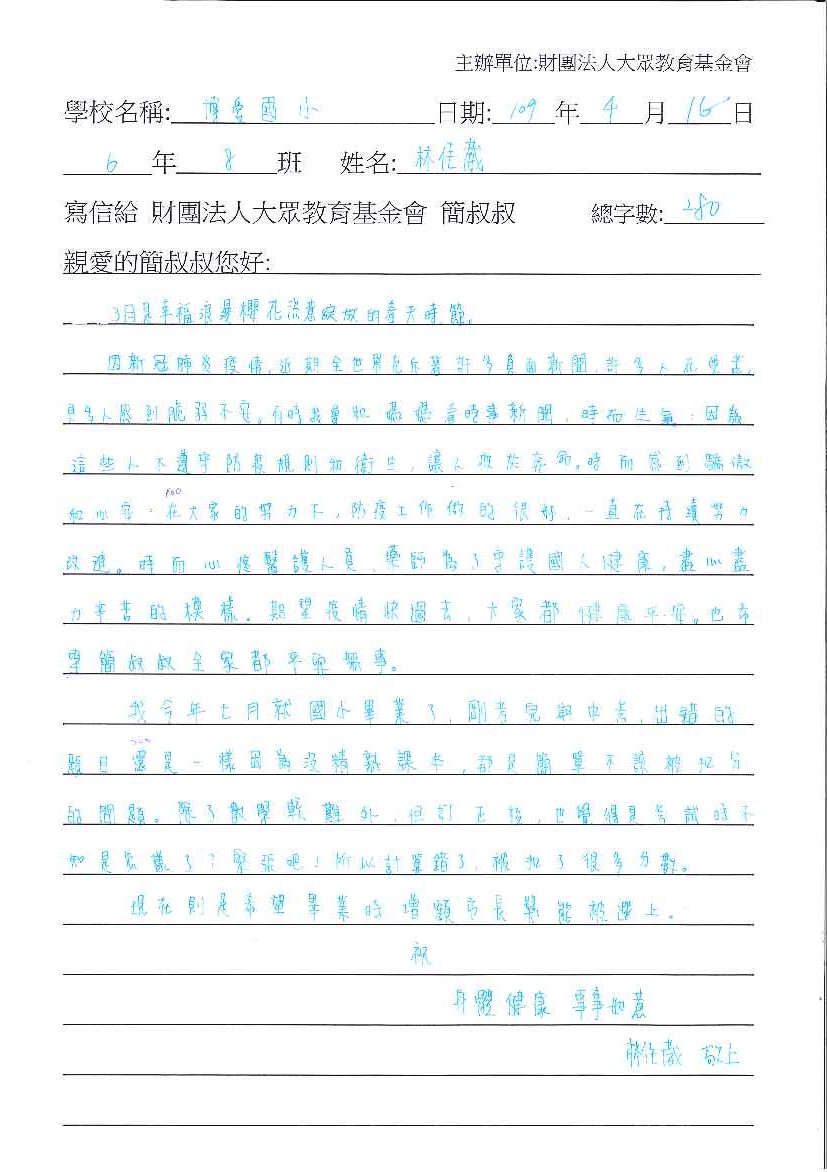 主辦單位:財團法人大眾教育基金會
學校名稱: 博愛國小 日期: 109 年 4 月 16 日
6 年 8 班 姓名: 林佳葳
寫信給 財團法人大眾教育基金會 簡叔叔 總字數: 280
親愛的簡叔叔您好:
3月是幸福浪漫櫻花盛意綻放的春天時節。
因新冠肺炎疫情,近期全世界充斥著許多負面新聞,許多人死
更多人感到脆弱不安。有時我會和媽媽看時事新聞,時而生氣:因為
這些人不遵守防疫規則和衛生,讓人疲於奔命。時而感到驕傲
和心安:在大家的努力下,防疫工作做的很好,一直在持續努力
100
改進。時而心疼醫護人員、藥師為了守護國人健康,盡心盡
力辛苦的模樣。期望疫情快過去,大家都健康平安。也希
望簡叔叔全家都平安無事。
我今年七月就國小畢業了,剛考完期中考,出錯的
題目還是一樣因為沒精熟課本,都是簡單不該被扣分
200
的問題。除了數學較難外,但訂正後,也覺得是考試時不
知是怎麼了?緊張吧!所以計算錯了,被扣了很多分數。
現在則是希望畢業時增額市長獎能被選上。
祝
身體健康 事事如意
林佳葳 敬上